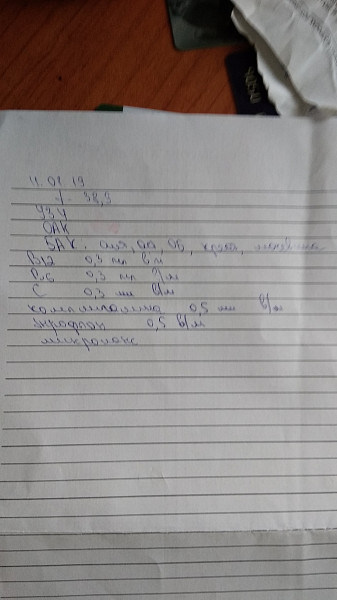 11.01.19
t - 38,3
УЗИ
ОАК
БАК. аля, аа, об, креат, мочевина
B12 0,3 мл в/м
B6 0,3 мл в/м
C 0,3 мл в/м
0,5 мл в/м
энрофлон 0,5 в/м
микролакс